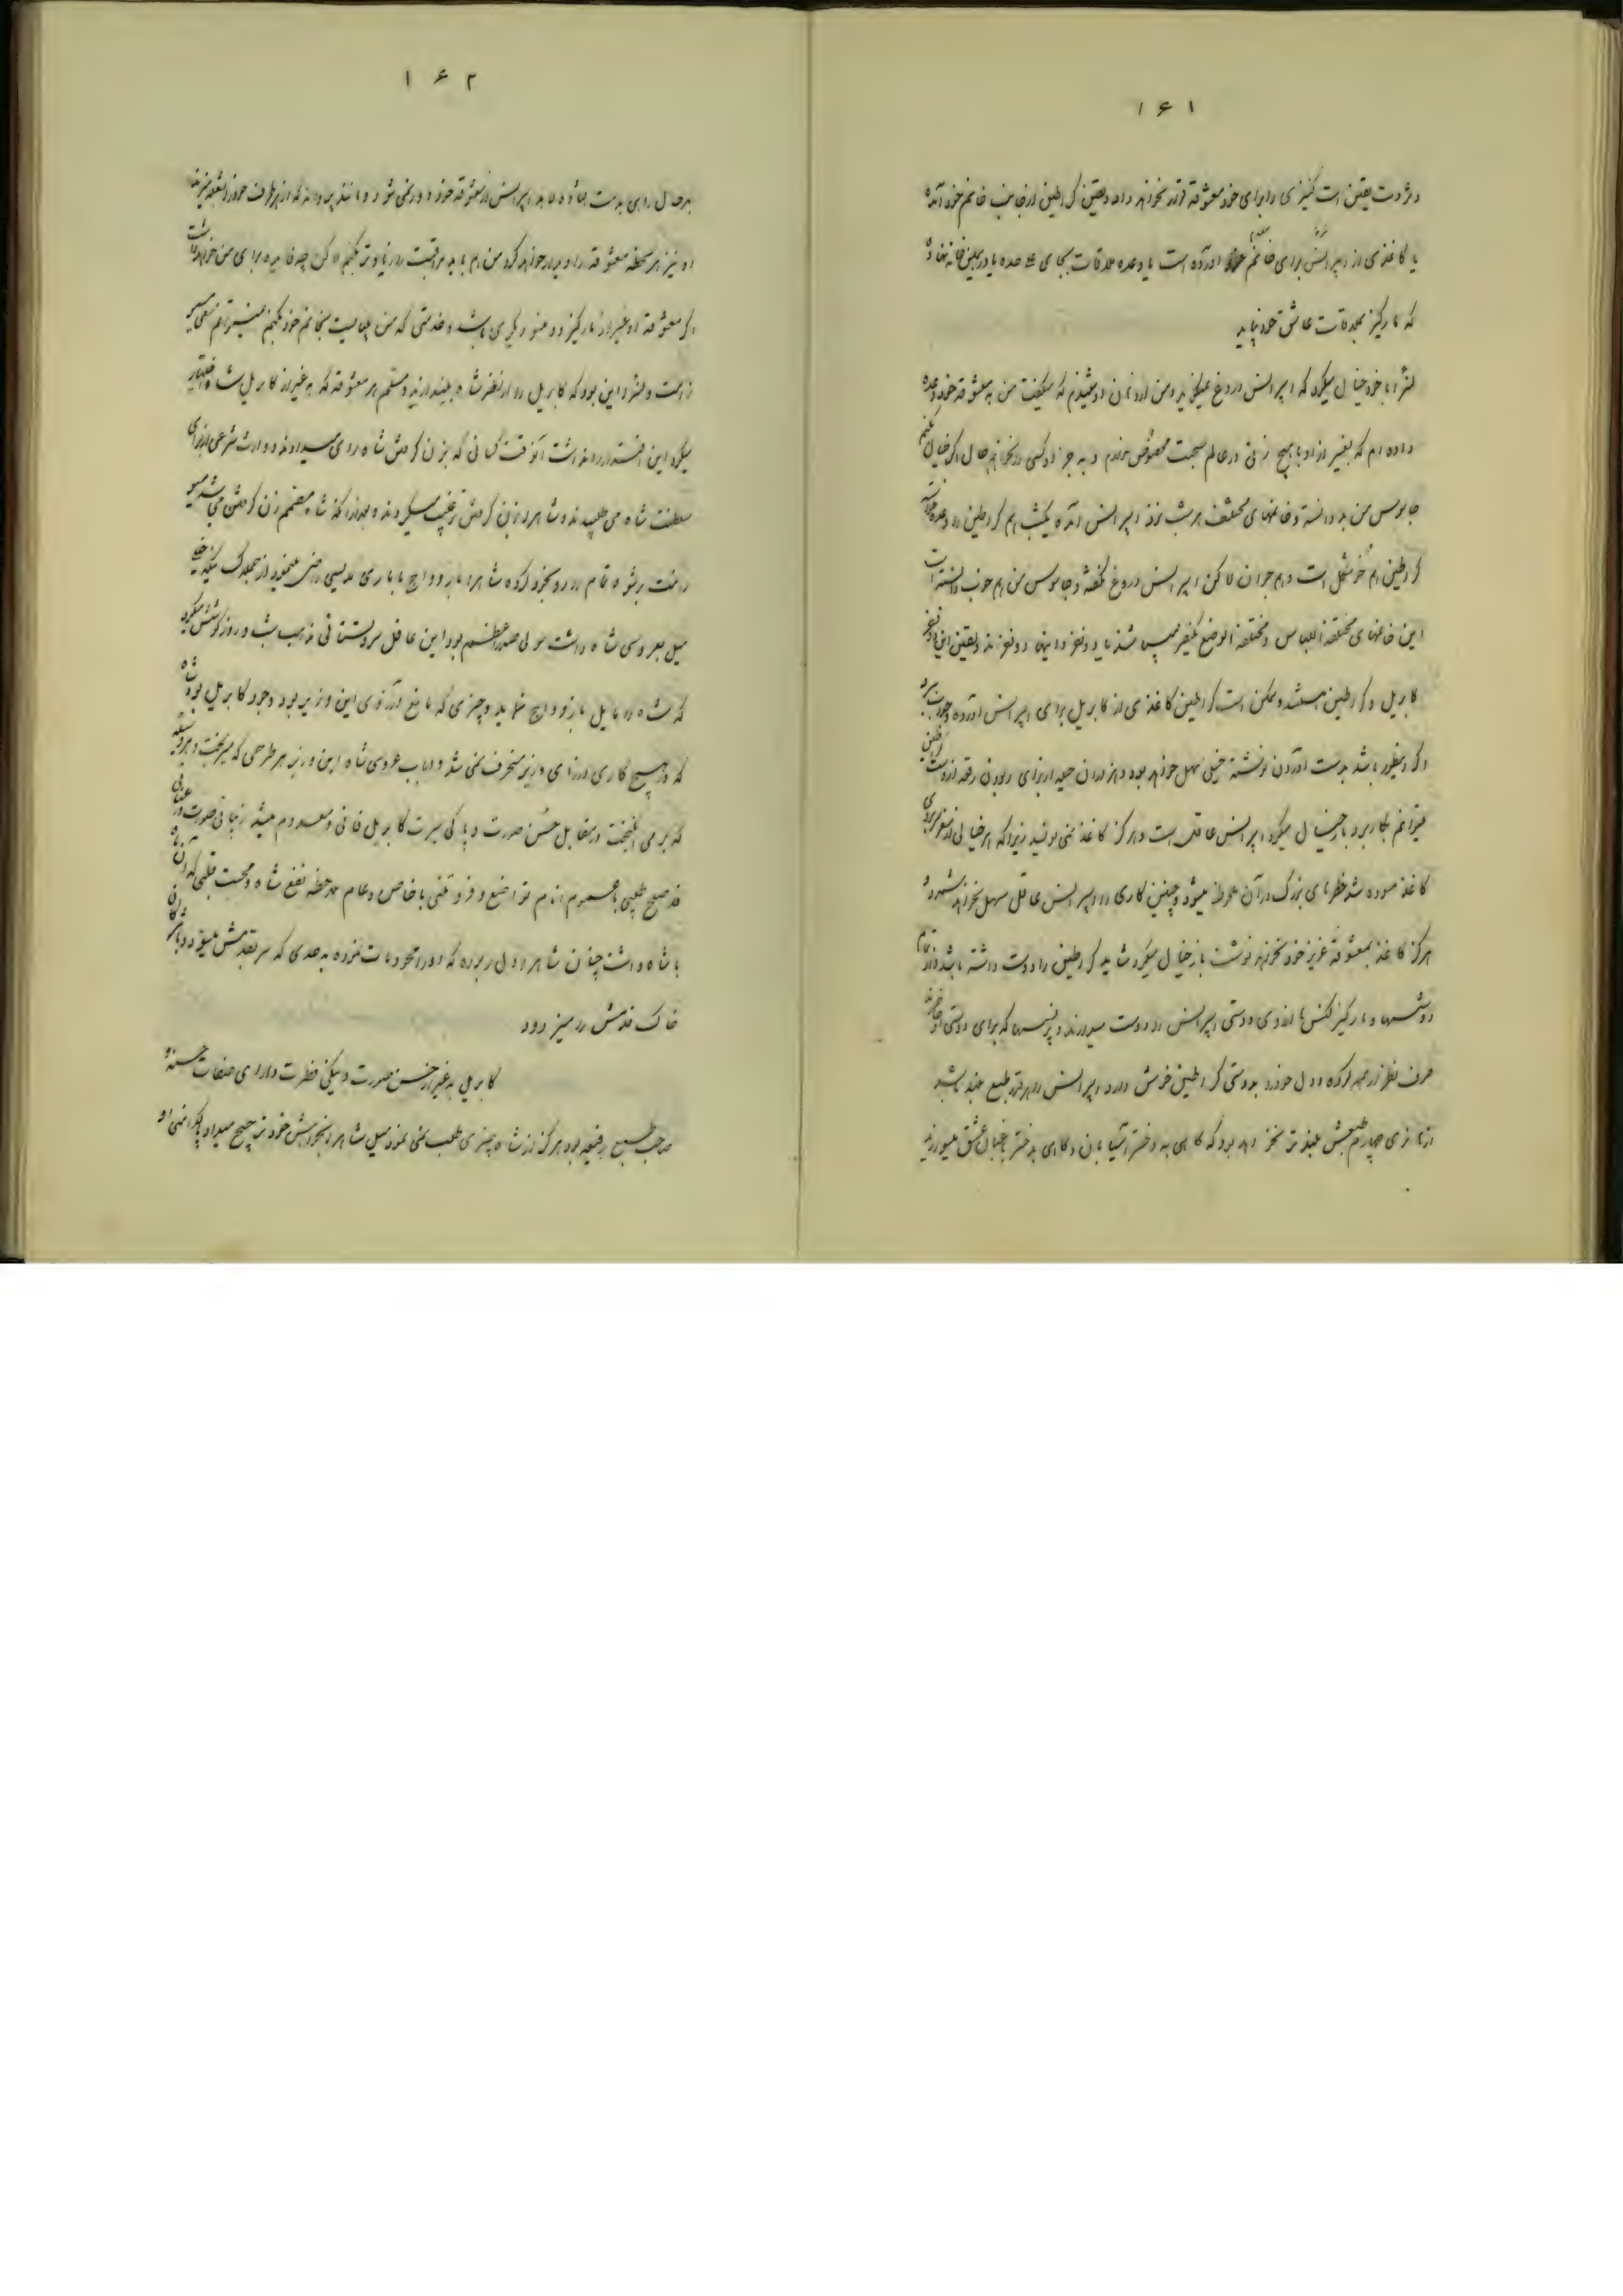 ۱۶۱
و ثروت یقین است کنیزی را برای خود معشوقه قرار نخواهد داد و یقین گرطین از جانب خانم خود آمده
یا کاغذی از اسپرانس برای خانم آورده است یا وعده ملاقات بجای علیحده یا در همین خانه نهاده
که مارکیز بملاقات عاشق خود نیاید
لنرا با خود خیال میکرد که اسپرانس دروغ نمیگوید و من از زبان او شنیدم که میگفت من به معشوقه خود وعده
داده ام که بغیر از او با هیچ زنی در عالم صحبت مخصوص ندارم و به جز او کسی را نخواهم حال اگر خیال کنیم
جاسوس من بد دانسته و خانمهای مختلف هر شب نزد اسپرانس آمده یکشب هم گرطین را وعده خواسته
گرطین هم خوشگل است و هم جوان لاکن اسپرانس دروغ نگفته و جاسوس من هم خوب دانسته است
این خانمهای مختلفة اللباس و مختلفة الوضع یکنفر میباشند یا دو نفر و اینها دو نفرند و یقین این دو نفر
کابریل و گرطین هستند و ممکن است گرطین کاغذی از کابریل برای اسپرانس آورده و جواب میبرد
اگر اینطور باشد بدست آوردن نوشته خیلی سهل خواهد بود و هزاران حیله از برای ربودن رقعه از دست گرطین
میتوانم بکار برد باز خیال میکرد اسپرانس عاقل است و هرگز کاغذ نمی نویسد زیرا که هر خیالی از سر بروی
کاغذ سوده شد خطرهای بزرگ در آن ملحوظ میشود و چنین کاری را اسپرانس عاقل سهل نخواهد شمرد و
هرگز کاغذ بمعشوقه عزیز خود نخواهد نوشت باز خیال میکرد شاید گرطین را دوست داشته باشد و از تمام
دوشسها و مارکیز لکنس ها آرزوی دوستی اسپرانس را دوست میدارند و پرنسسها که برای دوستی او حاضرند
صرف نظر از همه کرده و دل خود را بدوستی گرطین خوش دارد اسپرانس را هر قدر طبع بلند باشد
از هانری چهارم طبعش بلند تر نخواهد بود که گاهی به دختر آسیابان و گاهی بدختر باغبان عشق میورزید
۱۶۲
بهر حال رای بدست افتاده باید اسپرانس از معشوقه خود دور نمی شود و مانند پروانه که از هر طرف خود را بشعله میزند
او نیز هر لحظه معشوقه را دیدار خواهد کرد من هم باید مراقبت را زیادتر بکنم لاکن چه فایده برای من خواهد داشت
اگر معشوقه او غیر از مارکیز دومنسو دیگری باشد و خدمتی که من میبایست بخانم خود بکنم نمیتوانم سعی
زاست و لنرا این بود که کابریل را از نظر شاه بیندازند و مسلم هر معشوقه که به غیر از کابریل شاه اختیار
میکرد این اقتدار را نداشت آنوقت کسانی که بزن گرفتن شاه رای میدادند و وارث شرعی از برای
سلطنت شاه می طلبیدند و شاه را بزن گرفتن ترغیب میکردند و بعد از آنکه شاه مصمم زن گرفتن می شد
راهنمائی شاه تمام را رو بخود کرده شاه را به ازدواج با ماری مدیسی راضی مینمود از جمله کسانیکه خیلی
میل بعروسی شاه داشت سولی صدراعظم بود این عاقل پروتستانی مذهب شب و روز کوشش میکرد
که شاه را مایل بازدواج نماید و چیزی که مانع آرزوی این وزیر بود وجود کابریل بود شاه
که در هیچ کاری از رای وزیر منحرف نمی شد در باب عروسی شاه این وزیر هر طرحی که میریخت و هر وسیله
که بر می انگیخت در مقابل حسن صورت و پاکی سیرت کابریل فانی و معدوم میشد زیبائی صورت و رعنائی
قد صلح طلبی با عموم انام تواضع و فروتنی با خاص و عام ملاحظه نفع شاه و محبت قلبی که آن ماه
با شاه داشت چنان شاه را دل ربوده که او را محو و مات نموده به حدی که سر بقدمش میسود و بامژگان
خاک قدمش را میزدود
کابریل به غیر از حسن صورت و نیکی فطرت دارای صفات حسنه و
صاحب طبع رفیع بود هرگز از شاه چیزی طلب نمی نمود میل شاه را بخواهش خود ترجیح میداد پاکدامنی او